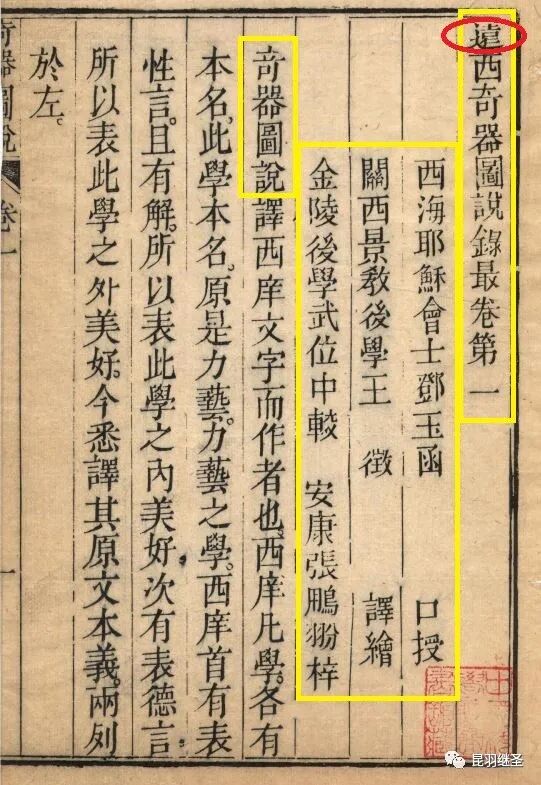 遠西奇器圖說錄最卷第一
西海耶穌會士鄧玉函 口授
關西景教後學王 徵 譯繪
金陵後學武位中較 安康張鵬翂梓
奇器圖說譯西庠文字而作者也。西庠凡學。各有
本名。此學本名。原是力藝。力藝之學。西庠首有表
性言。且有解。所以表此學之內美好次有表德言
所以表此學之外美好。今悉譯其原文本義。兩列
於左。
奇器圖說 卷一 一
昆羽继圣